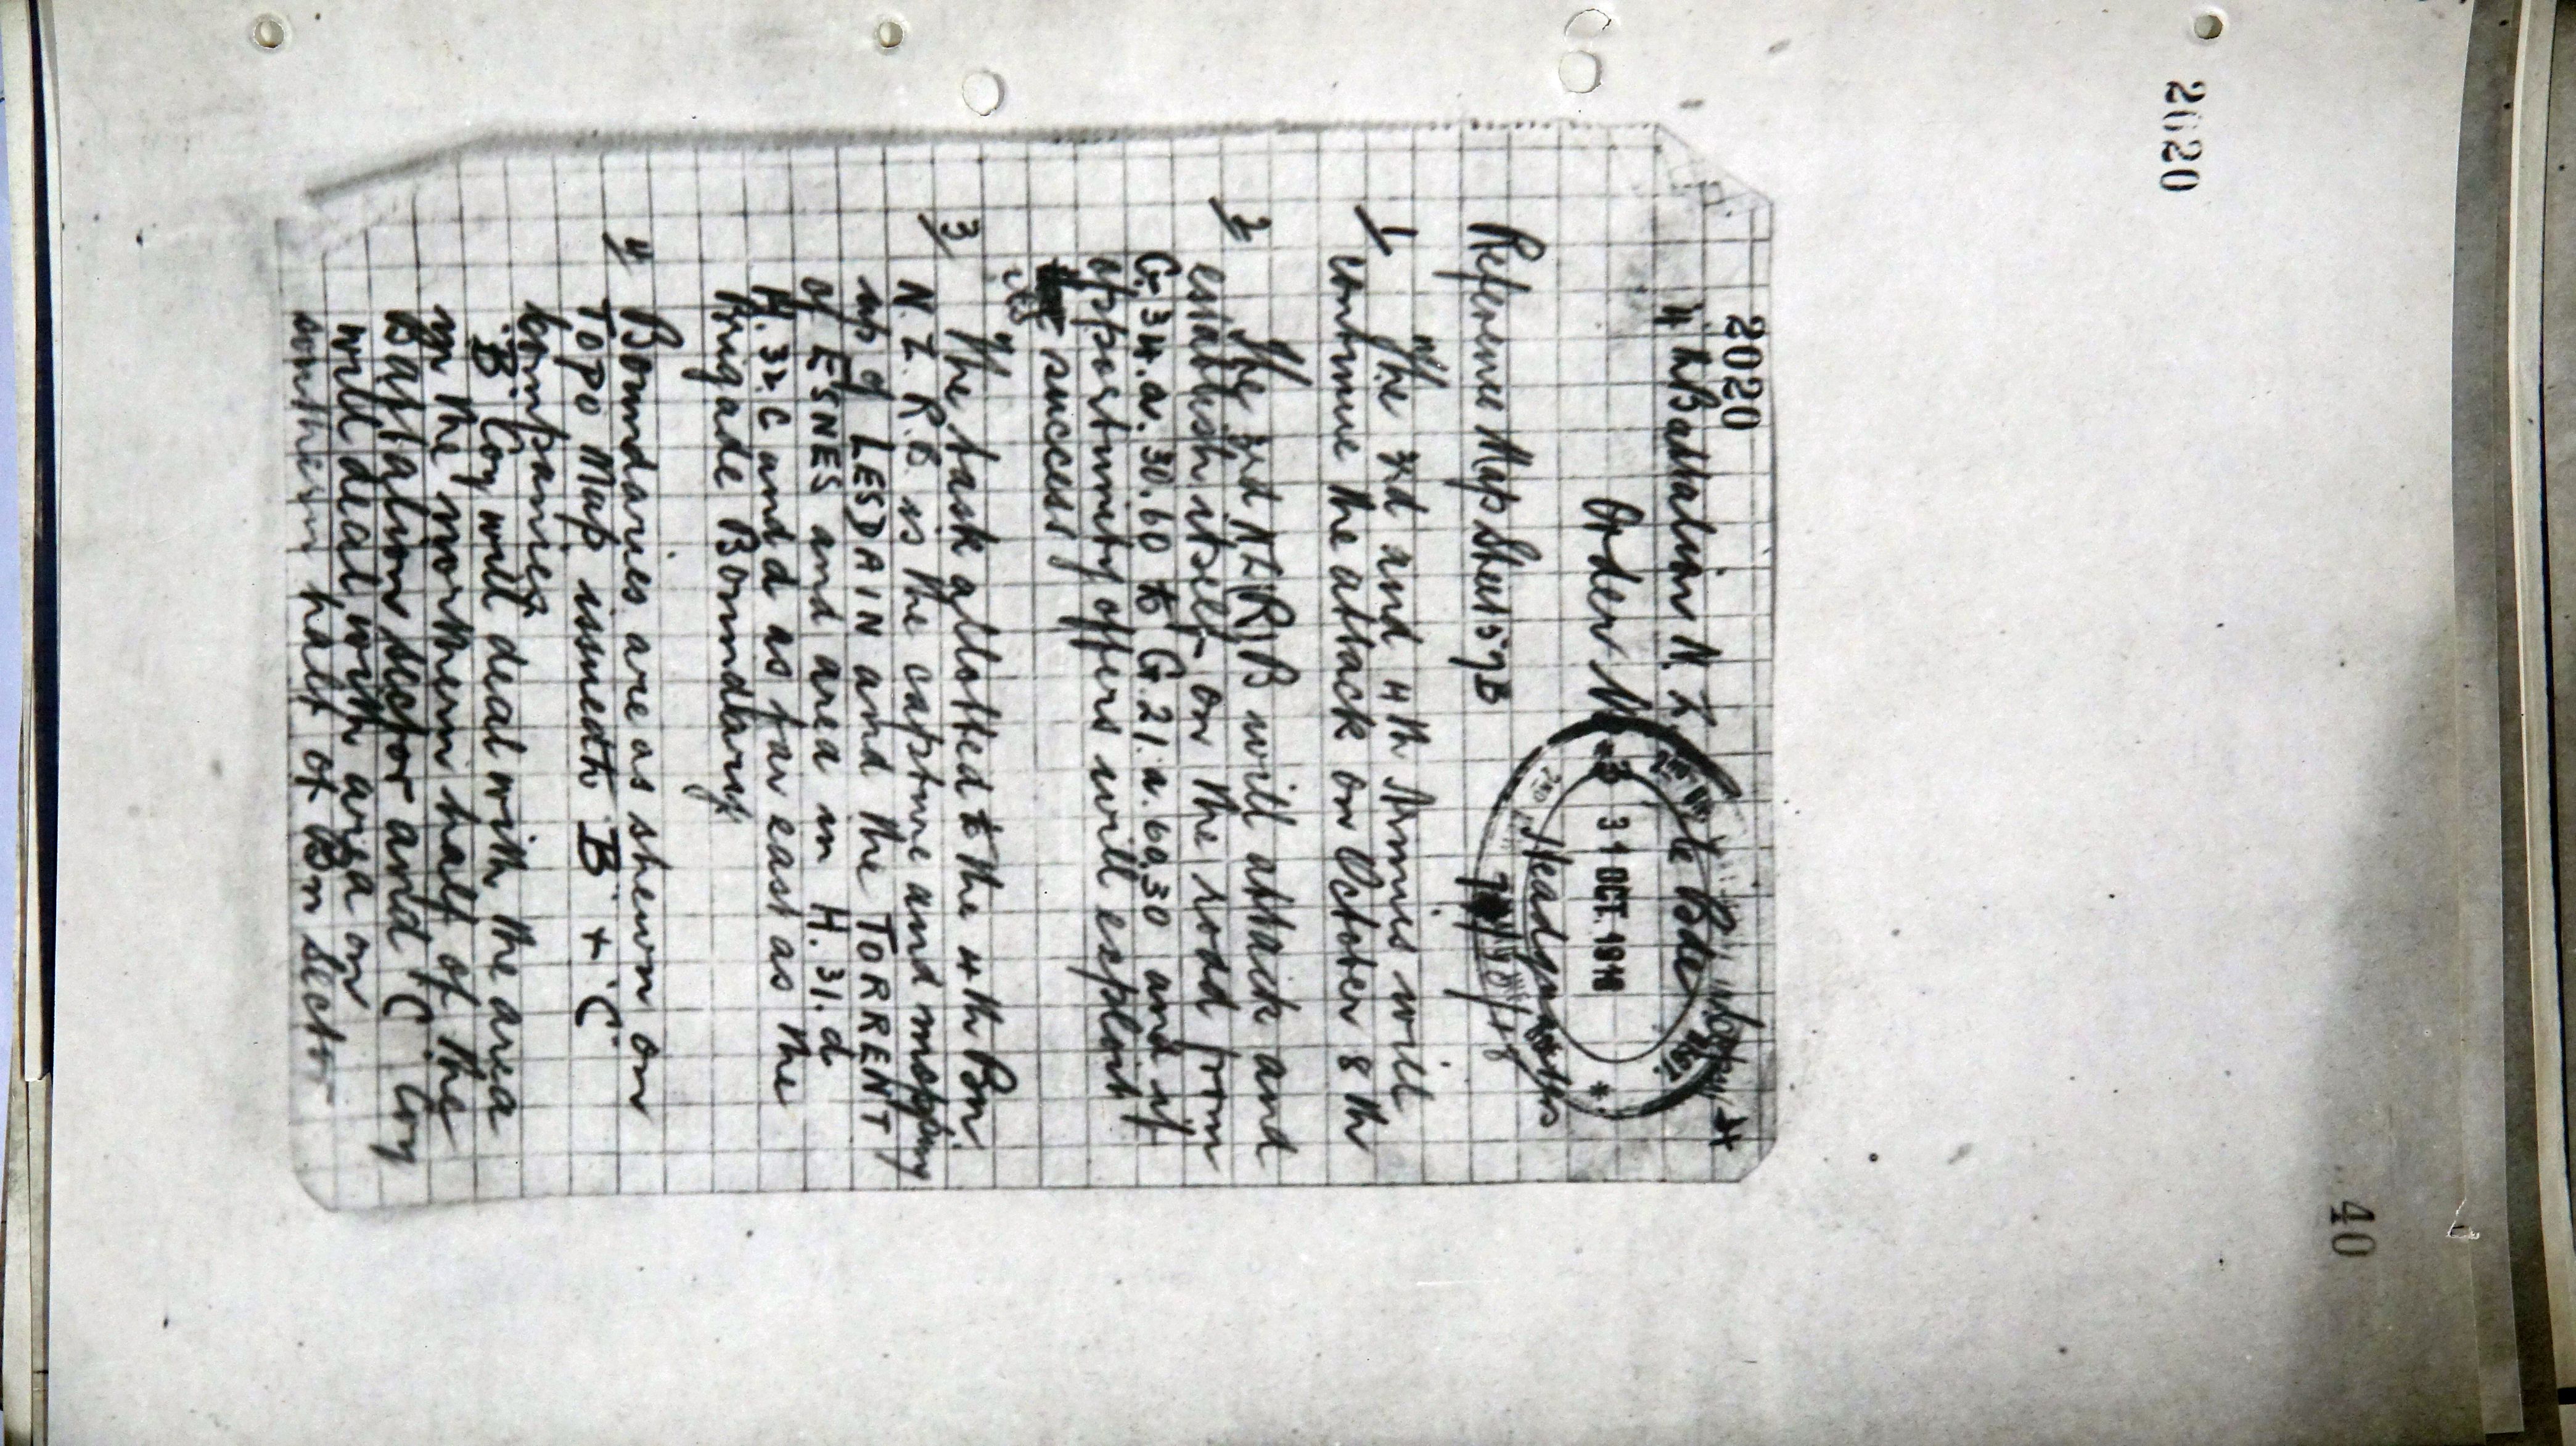 2020
40
2020
4th Battalion N.Z. Rifle Bde
Order
31 OCT. 1918
Headquarters
Reference Map Sheet 57B
1 The 3rd and 4th Armies will
continue the attack on October 8th
2 The 3rd N Z (R) B will attack and
establish itself on the road from
G.34.a.30.60 to G.21.a.60.30 and if
opportunity offers will exploit
its success
3 The task allotted to the 4th Bn
N.Z.R.B. is the capture and mopping
up of LESDAIN and the TORRENT
of ESNES and area in H.31.d
H.32.C and d as far east as the
Brigade Boundary
4 Boundaries are as shewn on
TOPO Map issued to "B" + "C"
Companies
"B" Coy will deal with the area
in the northern half of the
Battalion sector and "C" Coy
will deal with area on
southern half of Bn sector